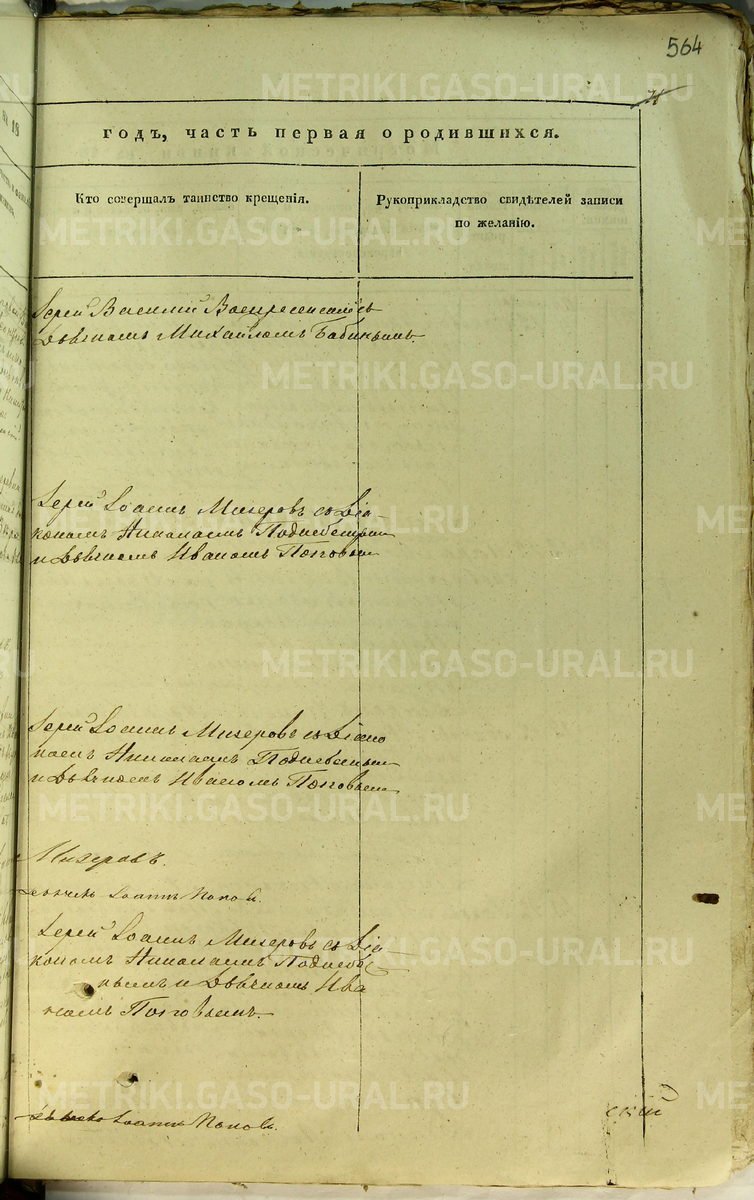 564
годъ, часть первая о родившихся.
Кто совершалъ таинство крещенія.
Рукоприкладство свидѣтелей записи
по желанію.
Іерей Василій Воскресенскій съ
Дьячкомъ Михаиломъ Бабинымъ.
Іерей Іоаннъ Мизеровъ съ Діа-
кономъ Николаемъ
и Дьячкомъ Иваномъ Поповымъ
Іерей Іоаннъ Мизеровъ съ Діако
номъ Николаемъ
и Дьячкомъ Иваномъ Поповымъ
Мизеровъ.
Іоаннъ Поповъ.
Іерей Іоаннъ Мизеровъ съ Діа
кономъ Николаемъ
и Дьячкомъ Ива
номъ Поповымъ.
Іоаннъ Поповъ.
METRIKI.GASO-URAL.RU